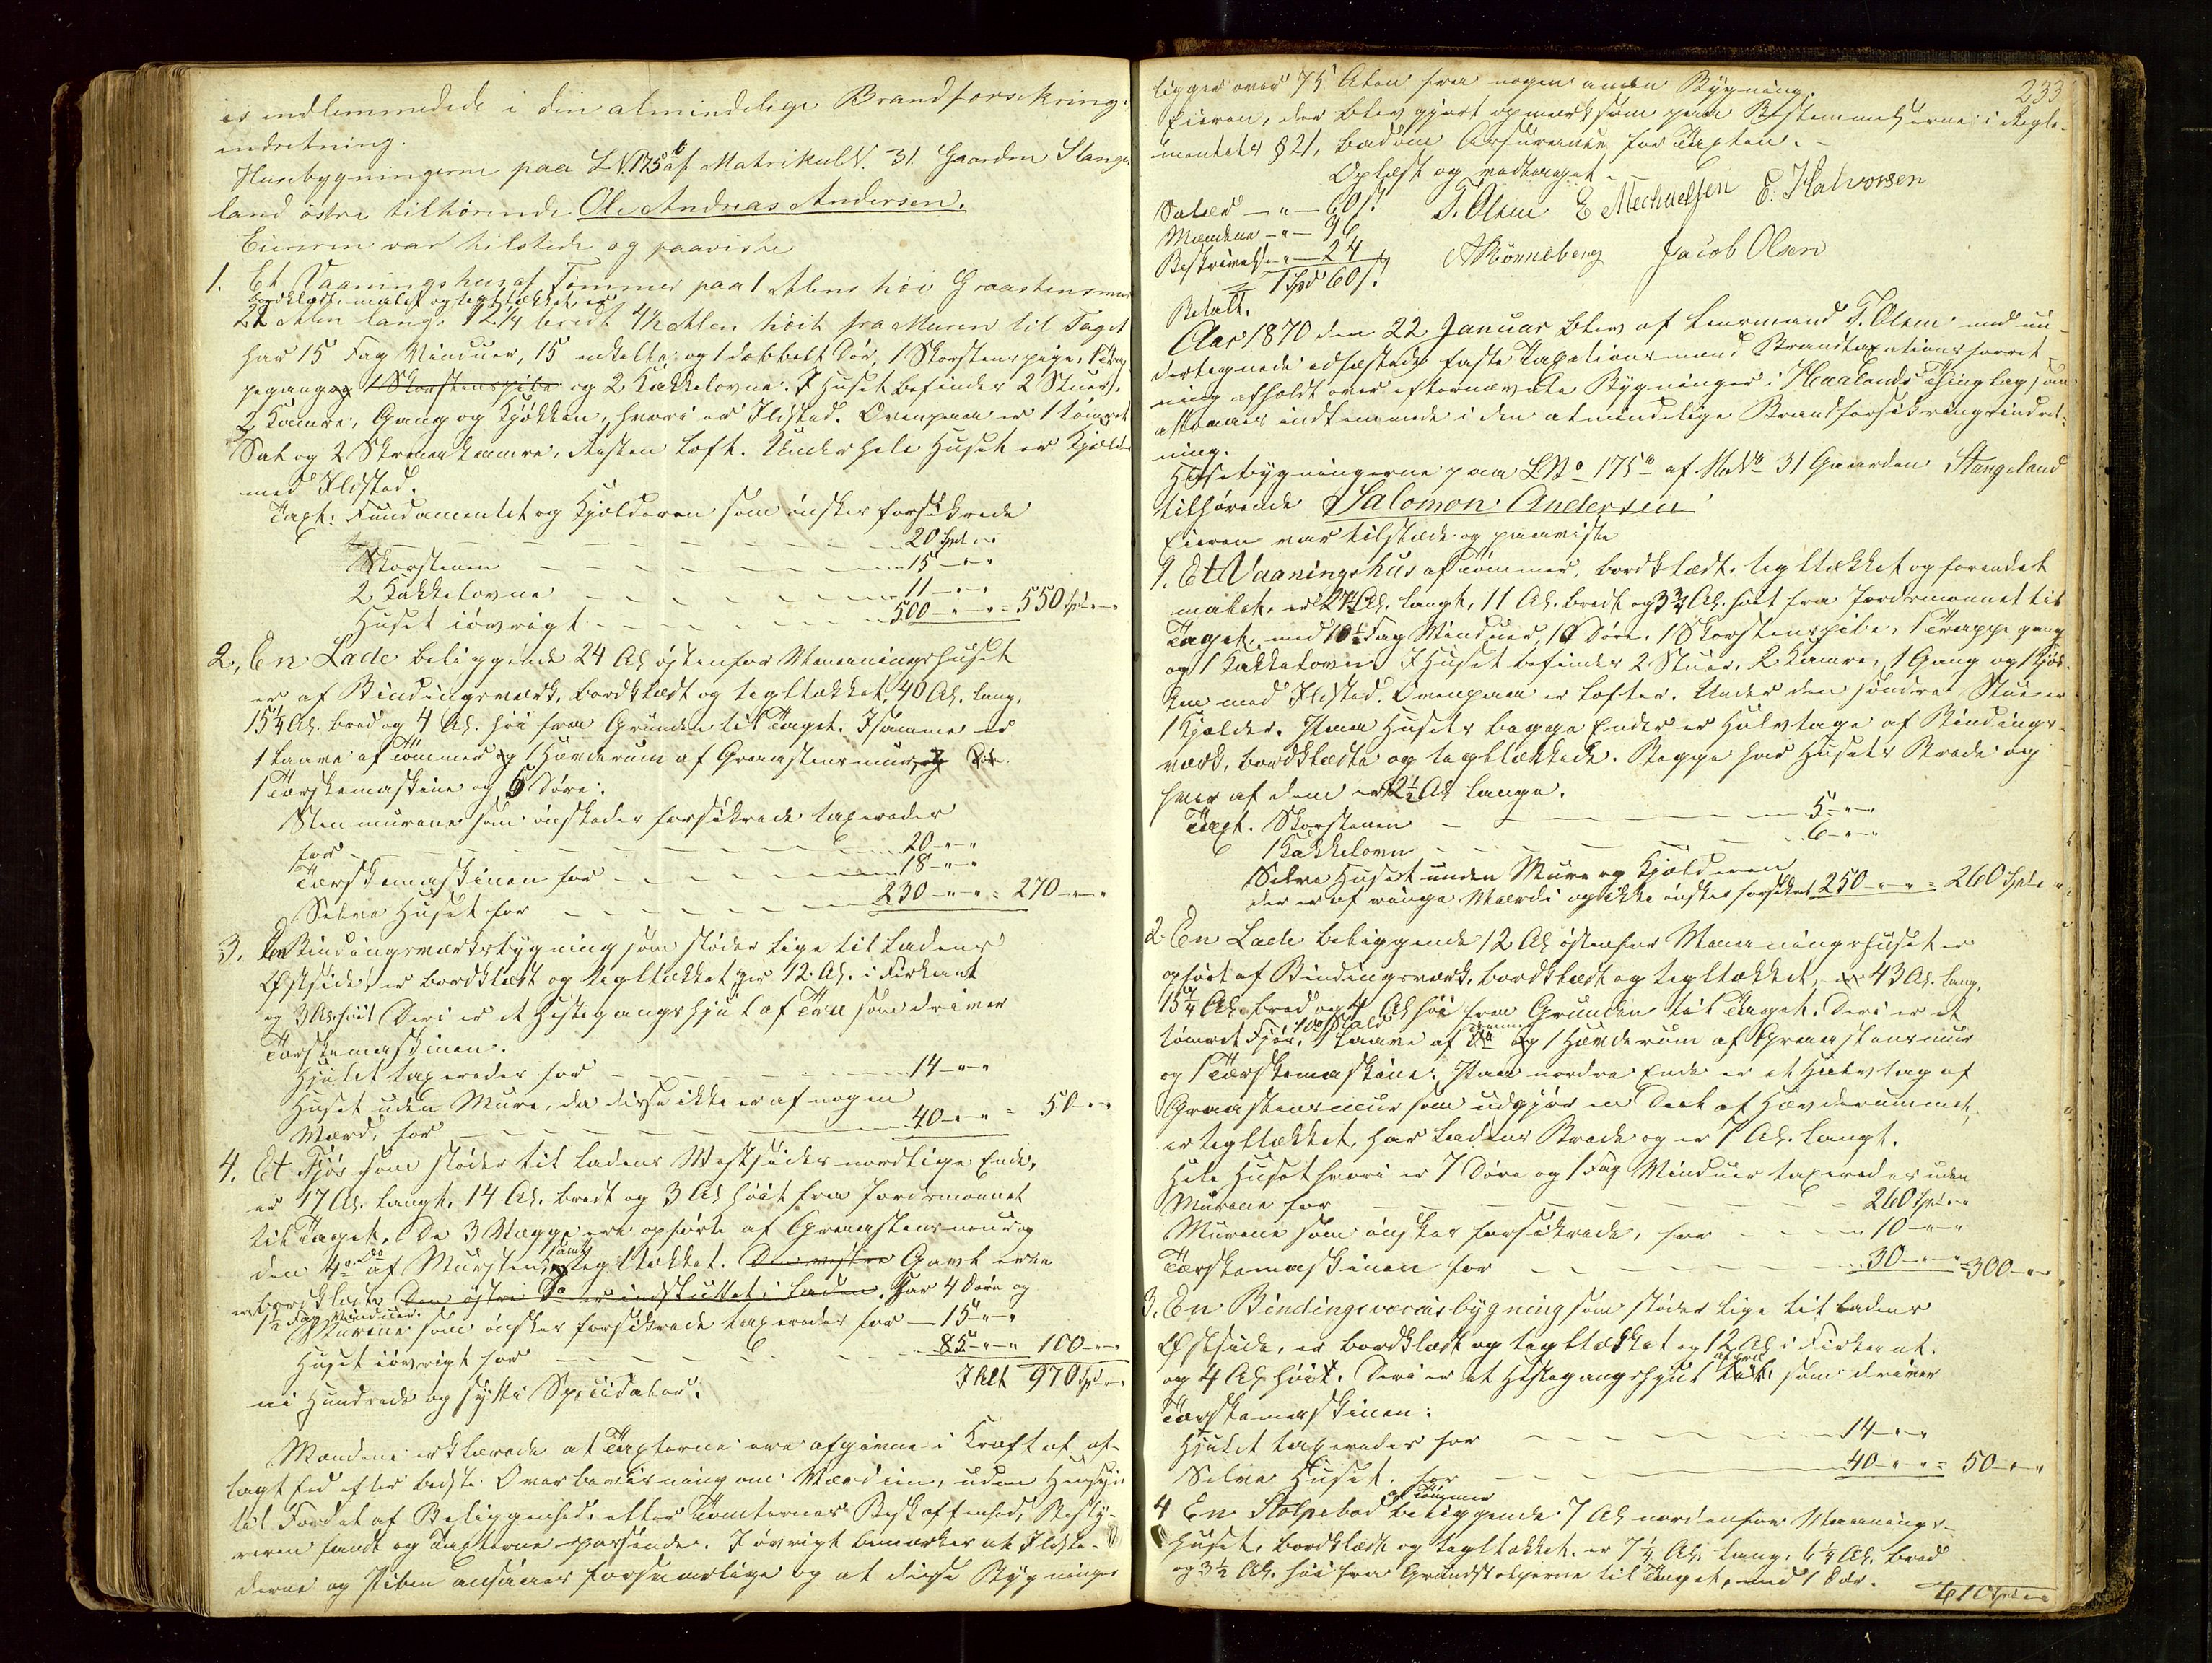 es indlemmedede i din almindelige Brandforsikrings
indretning.
Husebygningerne paa L.N. 175 b af Matrikul N. 31. Gaarden Stange
land östre tilhörende Ole Andreas Andersen.
Eieren var tilstede og paaviste
1. Et Vaaningshus af Tömmer paa 1 Alens höi Graastensmur
bordklædt, malet og tegltækket, er
22 Alen langt 12 1/4 bredt 4 1/2 Alen höit fra Muren til Taget
har 15 Fag Vinduer, 15 enkelte og 1 dobbelt Dör, 1 Skorstenspipe, Trap
pegang og 1 Skorstenspibe og 2 Kakkelovne. I Huset befindes 2 Stuer,
2 Kamre, Gang og Kjökken, hvori er Ildsted. Ovenpaa er 1 tömret
Sal og 2 Stræmkamre, Resten Loft. Under hele Huset er Kjelder
med Ildsted.
Taxt: Fundamentet og Kjelderen som önskes forsikrede
20 Spd " "
Skorstenen 15 - " "
2 Kakkelovne 11 - " "
Huset iövrigt 500 - " " = 550 Spd " "
2, En Lade beliggende 24 Al. östenfor Vaaningshuset
er af Bindingsværk, bordklædt og tegltækket, 40 Al. lang,
15 1/4 Al. bred og 4 Al. höi fra Grunden til Taget. I samme er
1 Laave af Tömmer og 1 Hærderum af Graastensmur,
1 Tærskemaskine og 6 Döre.
Stenmurene som önskedes forsikrede taxeredes
for 20 - " "
Tærskemaskinen for 18 - " "
Selve Huset for 230 - " " = 270 - " "
3. En Bindingsværksbygning som stöder lige til Ladens
Östside, er bordklædt og tegltækket er 12 Al. i Firkant
og 3 Al. höit Deri er et Hestegangshjul af Træ som driver
Tærskemaskinen.
Hjulet taxeredes for 14 - " "
Huset uden Mure, da disse ikke er af nogen
Værd, for 40 - " " = 50 - " "
4. Et Fjös som stöder til Ladens Vestsides nordlige Ende,
er 17 Al. langt, 14 Al. bredt og 3 Al. höit fra Jordsmonnet
til Taget. De 3 Vægge ere opförte af Graastensmur og
den 4de Do af Mursten, samt tegltækket. Den vestre Gavl er
er bordklædt Den östre Do er indskuttet i Laden. Har 4 Döre og
1 1/2 Fag Vinduer.
Murene som önskes forsikrede taxeredes for 15 - " "
Huset iövrigt for 85 - " " 100 - " "
Ialt 970 Spd " "
ni Hundrede og sytti Speciedaler.
Mændene erklærede at Taxterne ere afgivne i Kraft af af-
lagt Eed efter bedste Overbevisning om Værdien, uden Hensyn
til Fordel af Beliggenhed, eller Tomternes Beskaffenhed, Besty-
reren fandt og Taxterne passende. I övrigt bemærkes at Ildste-
derne og Piben ansaaes forsvarlige og at disse Bygninger
233
ligger over 75 Alen fra nogen anden Bygning.
Eieren, der blev gjort opmærksom paa Bestemmelserne i Regle-
mentets § 21, bad om Assurance for Taxten.
Oplæst og vedtaget.
Salær - " - 60 s.
Mændene - " - 96
Beskrivelse " - 24
= 1 Spd 60 s.
T. Olsen E Mechaelsen E. Halvorsen
A Rönneberg Jacob Olsen
Betalt.
Aar 1870 den 22 Januar blev af Lensmand T. Olsen med un-
dertegnede edfæstede faste Taxationsmænd Brandtaxationsforret-
ning afholdt over efternævnte Bygninger i Haalands Thinglag som
attraaes indlemmede i den almindelige Brandforsikringsindret-
ning.
Husebygningerne paa L No 175 a af M No 31 Gaarden Stangeland
tilhörende Salomon Andersen
Eieren var tilstede og paaviste
1. Et Vaaningshus af Tömmer, bordklædt, tegltækket og forendet
malet, er 24 Al. langt, 11 Al. bredt og 3 3/4 Al. höit fra Jordsmonnet til
Taget, med 10 1/2 Fag Vinduer, 10 Döre, 1 Skorstenspibe, 1 Trappegang
og 1 Kakkelovn. I Huset befindes 2 Stuer, 2 Kamre, 1 Gang og 1 Kjök-
ken med Ildsted. Ovenpaa er Lofter. Under den söndre Stue er
1 Kjelder. Paa Husets begge Ender er Halvtage af Bindings-
værk, bordklædte og tegltækkede. Begge har Husets Brede og
hver af dem er 2 1/2 Al. lange.
Taxt. Skorstenen 5 - " "
1 Kakkelovn 6 - " "
Selve Huset uden Mure og Kjelderen
der er af ringe Værdi og ikke önskes forsikret 250 - " " = 260 Spd " "
2. En Lade beliggende 12 Al. östenfor Vaaningshuset er
opfört af Bindingsværk, bordklædt og tegltækket, er 43 Al. lang,
15 1/4 Al. bred og 4 Al. höi fra Grunden til Taget. Deri er et
tömret Fjös, 1 Laave af Do og 1 Hærderum af Graastensmur
og 1 Tærskemaskine. Paa nordre Ende er et Halvtag af
Graastensmur som udgjör en Deel af Hærderummet,
er tegltækket, har Ladens Brede og er 7 Al. langt.
Hele Huset hvori er 7 Döre og 1 Fag Vinduer taxeredes uden
Murene for 260 Spd " "
Murene som önskes forsikrede, for 10 - " "
Tærskemaskinen for 30 - " " = 300 - " "
3. En Bindingsværksbygning som stöder lige til Ladens
Östside, er bordklædt og tegltækket og 12 Al. i Firkant.
og 4 Al. höit. Deri er et Hestegangshjul af Træ som driver
Tærskemaskinen.
Hjulet taxeredes for 14 - " "
Selve Huset, for 40 - " " = 50 - " "
4 En Stolpebod af Tömmer beliggende 7 Al. nordenfor Vaanings-
huset, bordklædt og tegltækket, er 7 1/4 Al. lang, 6 1/4 Al. bred
og 3 1/2 Al. höi fra Grundstolperne til Taget, med 1 Dör.
610 Spd " "